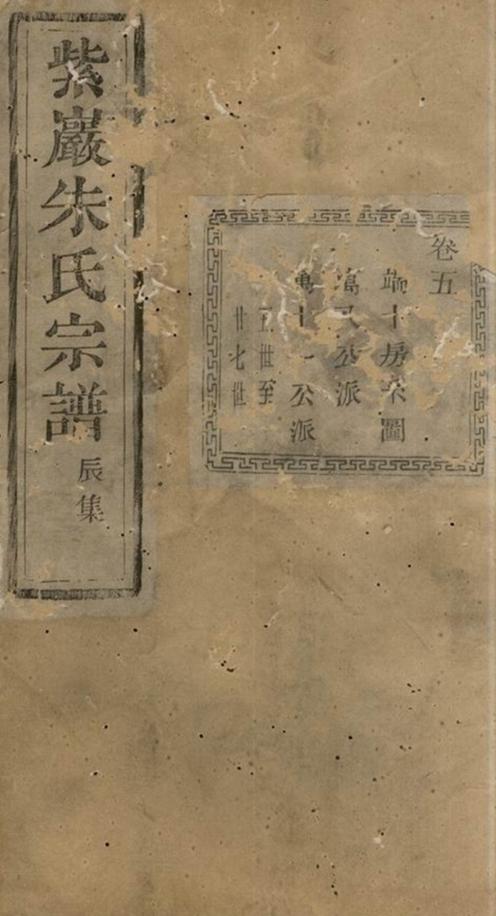 紫巖朱氏宗譜
辰集
卷五
十房宗圖
公派
十一公派
世至
廿七世